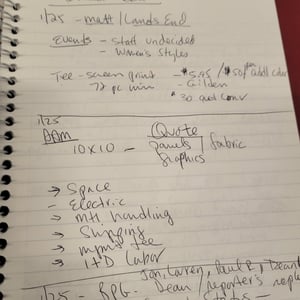 1/25 - Matt / Lands End
Events - staff undecided
- Women's Styles
Tee - screen print - $5.95 / $.50/ addl color
72 pc min - Gilden
30 qud conv
1/25
AAM Quote
10x10 - panels / fabric
graphics
→ Space
- Electric
→ Mtl handling
→ Shipping
→ mgmt fee
→ I+D Labor
Jon, Lauren, Paul R,
1/25 - BPG. Dean / reporter's